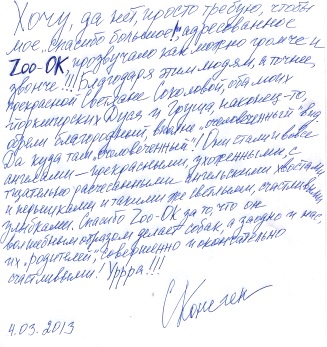 Хочу, да нет, просто требую, чтобы
мое „спасибо большое", адресованное
Zoo-OK, прозвучало как можно громче и
звонче!!! Благодаря этим людям, а точнее,
прекрасной Светлане Соколовой, оба моих
йоркширских Друга и Груша, наконец-то,
обрели благородный, вполне „очеловеченный" вид.
Да куда там „очеловеченный"! Они стали и вовсе
ангелами – прекрасными, ухоженными, с
тщательно расчесанными ангельскими хвостами
и перышками и такими же светлыми, счастливыми
улыбками. Спасибо Zoo-OK за то, что он
волшебным образом делает собак, а заодно и нас,
их „родителей", совершенно и окончательно
счастливыми! Уррра!!!
4.03.2013